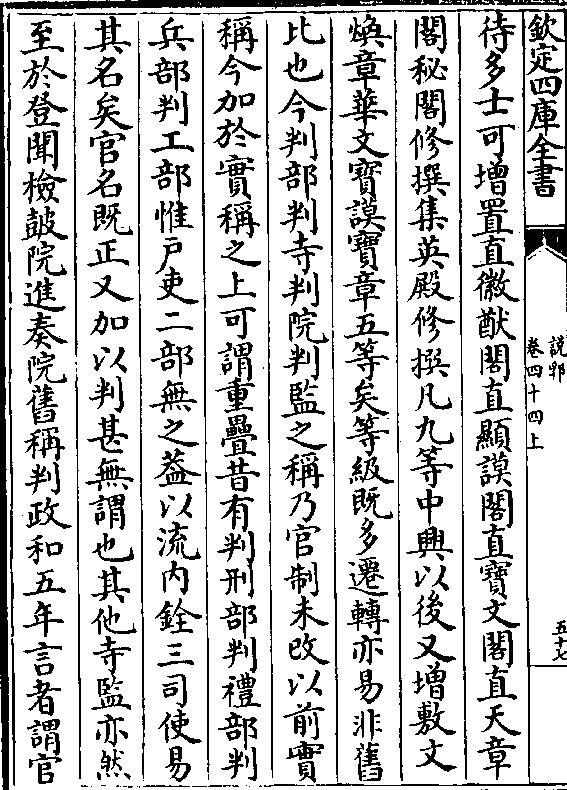 欽定四庫全書
說郛
卷四十四上
五十七
待多士可增置直徽猷閣直顯謨閣直寶文閣直天章
閣秘閣修撰集英殿修撰凡九等中興以後又增敷文
煥章華文寶謨寶章五等矣等級既多遷轉亦易非舊
比也今判部判寺判院判監之稱乃官制未改以前實
稱今加於實稱之上可謂重疊昔有判刑部判禮部判
兵部判工部惟戸吏二部無之葢以流内銓三司使易
其名矣官名既正又加以判甚無謂也其他寺監亦然
至於登聞檢鼓院進奏院舊稱判政和五年言者謂官